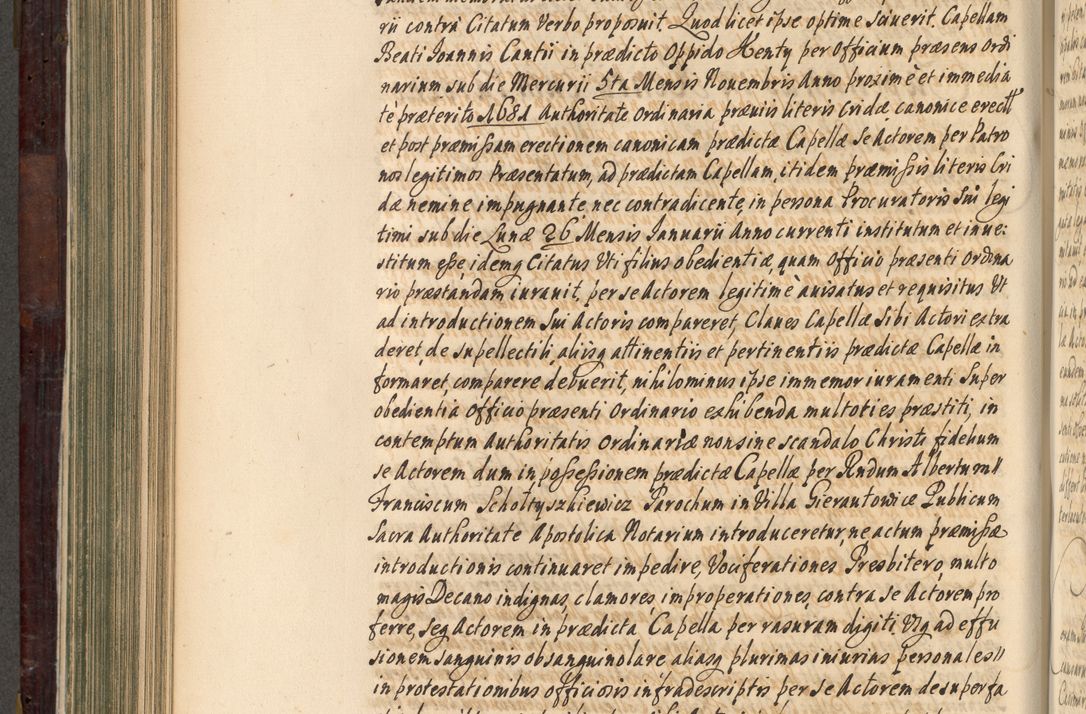 rii contra Citatum Verbo proposuit. Quod licet ipse optime sciuerit, Capellam
Beati Ioannis Cantii in prædicto Oppido Kenty per Officium præsens Ordi
narium sub die Mercurii 5ta Mensis Nouembris Anno proximè et immedia
tè præterito 1681 Authoritate Ordinaria præuiis literis Cridæ canonice erectã
et post præmißam erectionem canonicam prædictæ Capellæ Se Actorem per Patro
nos legitimos Præsentatum, ad prædictam Capellam, itidem præmißis literis Cri
dæ nemine impugnante, nec contradicente, in persona Procuratoris Sui legi
timi sub die Lunæ 26 Mensis Ianuarii Anno currenti institutum et inue:
stitum eße idemq Citatus Uti filius obedientiæ, quam Officio præsenti Ordina
rio præstandam iurauit, per se Actorem legitimè auisatus et requisitus Ut
ad introductionem Sui Actoris compareret, Claues Capellæ Sibi Actori extra
deret, de supellectili, aliisq attinentiis et pertinentiis prædictæ Capellæ in
formaret, comparere debuerit, nihilominus ipse immemor iuramenti Super
obedientia Officio præsenti Ordinario exhibenda multoties præstiti, in
contemptum Authoritatis Ordinariæ non sine scandalo Christi fidelium
se Actorem dum in poßeßionem prædictæ Capellæ per Rndum Albertum
Franciscum Scholtyszkiewicz Parochum in Villa Gierautowice Publicum
Sacra Authoritate Apostolica Notarium introduceretur, ne actum præmißæ
introductionis continuaret impedire, Vociferationes Presbitero, multo
magis Decano indignas, clamores, improperationes, contra se Actorem pro
ferre, seq Actorem in prædicta Capella per rasuram digiti, Usq ad effu
sionem sanguinis obsanguinolare aliasq plurimas iniurias personales
in protestationibus officiosis infradescriptis per se Actorem desuper fa